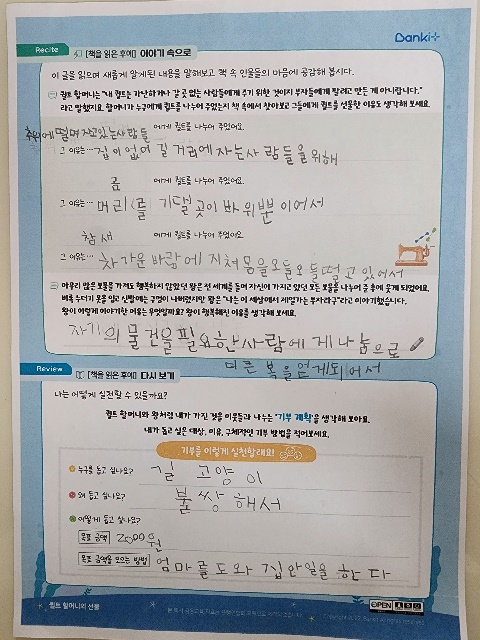 Banki+
Recite [책을 읽은 후에] 이야기 속으로
이 글을 읽으며 새롭게 알게된 내용을 말해보고 책 속 인물들의 마음에 공감해 봅시다.
퀼트 할머니는 "내 퀼트는 가난하거나 갈 곳 없는 사람들에게 주기 위한 것이지 부자들에게 팔려고 만든 게 아니랍니다."
라고 말했지요. 할머니가 누구에게 퀼트를 나누어 주었는지 책 속에서 찾아보고 그들에게 퀼트를 선물한 이유도 생각해 보세요.
추위에 떨며자고있는사람들 에게 퀼트를 나누어 주었어요.
그 이유는… 집이 없어 길거리에 자는사람들을위해
곰 에게 퀼트를 나누어 주었어요.
그 이유는… 머리를 기댈 곳이 바위뿐이어서
참새 에게 퀼트를 나누어 주었어요.
그 이유는… 차가운바람에 지쳐몸을오들오들떨고있어서
아무리 많은 보물을 가져도 행복하지 않았던 왕은 전 세계를 돌며 자신이 가지고 있던 모든 보물을 나누어 준 후에 웃게 되었어요.
비록 누더기 옷을 입고 신발에는 구멍이 나버렸지만 왕은 "나는 이 세상에서 제일가는 부자라구"라고 이야기했습니다.
왕이 이렇게 이야기한 이유는 무엇일까요? 왕이 행복해진 이유를 생각해 보세요.
자기의 물건을필요한사람에게나눔으로
더큰 복을얻게되어서
Review [책을 읽은 후에] 다시 보기
나는 어떻게 실천할 수 있을까요?
퀼트 할머니와 왕처럼 내가 가진 것을 이웃들과 나누는 '기부 계획'을 생각해 보아요.
내가 돕고 싶은 대상, 이유, 구체적인 기부 방법을 적어보세요.
기부를 이렇게 실천할래요!
누구를 돕고 싶나요? 길 고양이
왜 돕고 싶나요? 불쌍해서
어떻게 돕고 싶나요?
목표 금액 2000원
목표 금액을 모으는 방법 엄마를도와 집안일을한다
퀼트 할머니의 선물
OPEN